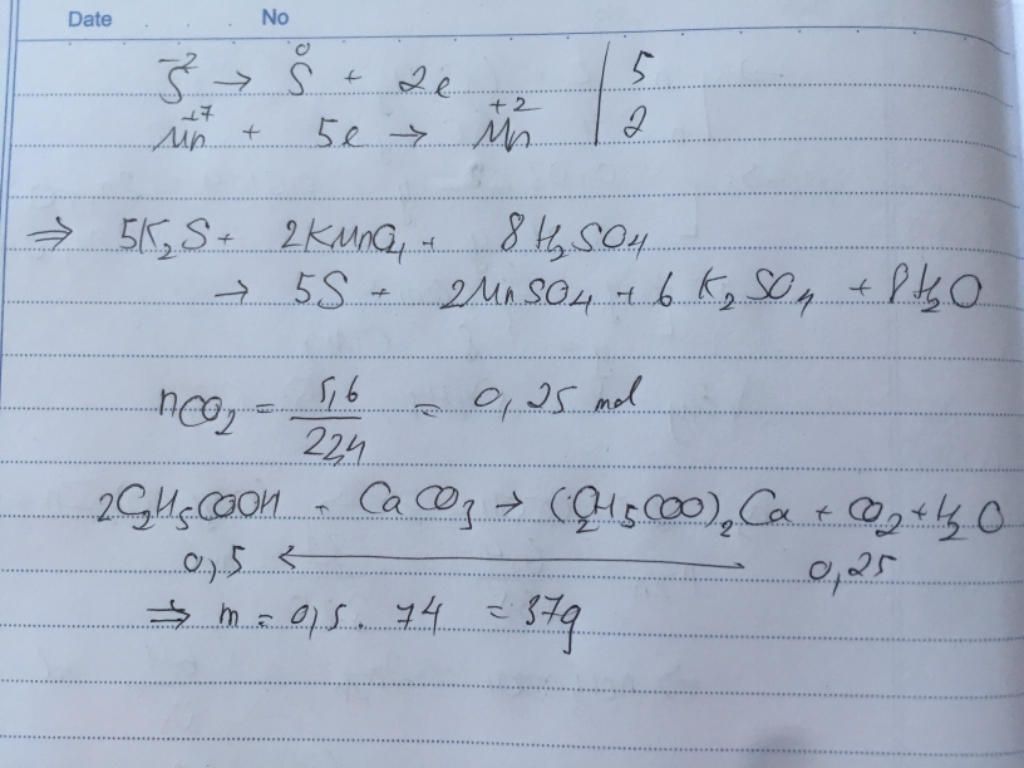 Date No
S⁻² → S⁰ + 2e | 5
Mn⁺⁷ + 5e → Mn⁺² | 2
⇒ 5K₂S + 2KMnO₄ + 8H₂SO₄
→ 5S + 2MnSO₄ + 6K₂SO₄ + 8H₂O
nCO₂ = 5,6/22,4 = 0,25 mol
2C₂H₅COOH + CaCO₃ → (C₂H₅COO)₂Ca + CO₂ + H₂O
0,5 ← 0,25
⇒ m = 0,5 . 74 = 37g